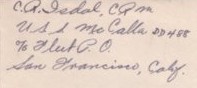 C.A. Isdal, C.R.M.
U.S.S. McCalla DD488
℅ Fleet P.O.
San Francisco, Calif.